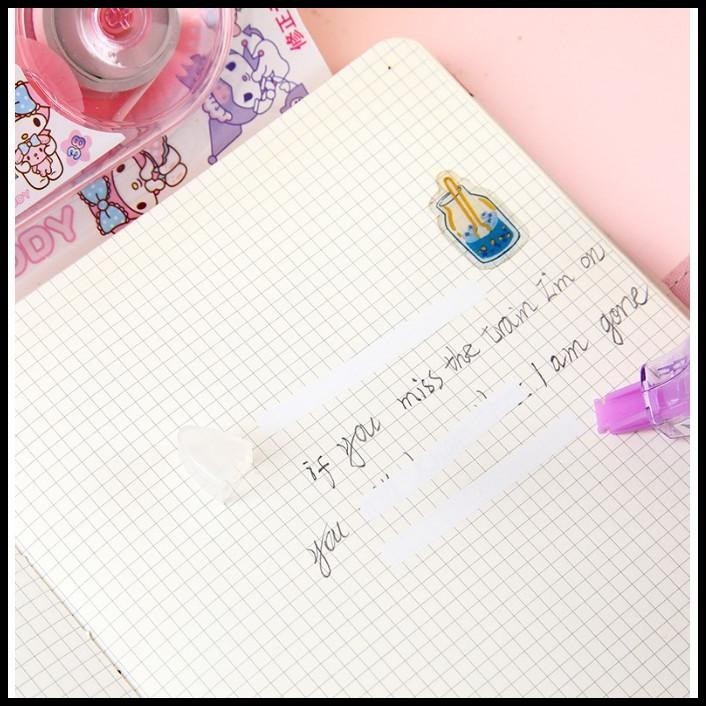 修正
DDY
if you miss the train I'm on
you I am gone